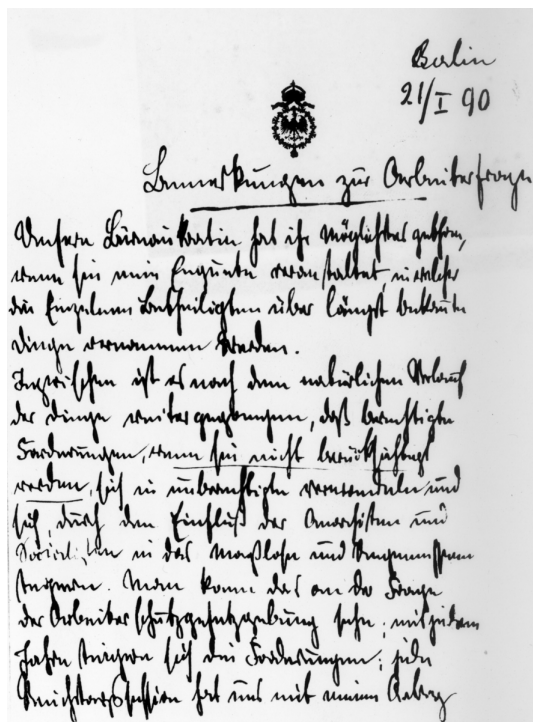 Berlin
21/I 90
Bemerkungen zur Arbeiterfrage
Unsere Büreaukratie hat ihr Möglichstes gethan,
wenn sie eine Enquete veranstaltet, in welcher
die Einzelnen Betheiligten über längst bekannte
Dinge vernommen werden.
Inzwischen ist es nach dem natürlichen Verlauf
der Dinge weiter gegangen, daß berechtigte
Forderungen, wenn sie nicht berücksichtigt
werden, sich in unberechtigte verwandeln und
sich, durch den Einfluß der Anarchisten und
Socialisten in das Maßlose und Ungemessene
steigern. Man kann das an der Frage
der Arbeiterschutzgesetzgebung sehen; mit jedem
Jahre steigern sich die Forderungen; jede
Reichstagssession hat uns mit einem